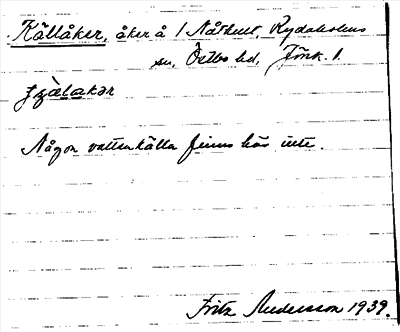 Källåker, åker å 1 Nåthult, Rydaholms
sn, Östbo hd, Jönk. l.
Någon vattenkälla finns här inte.
Fritz Andersson 1939.